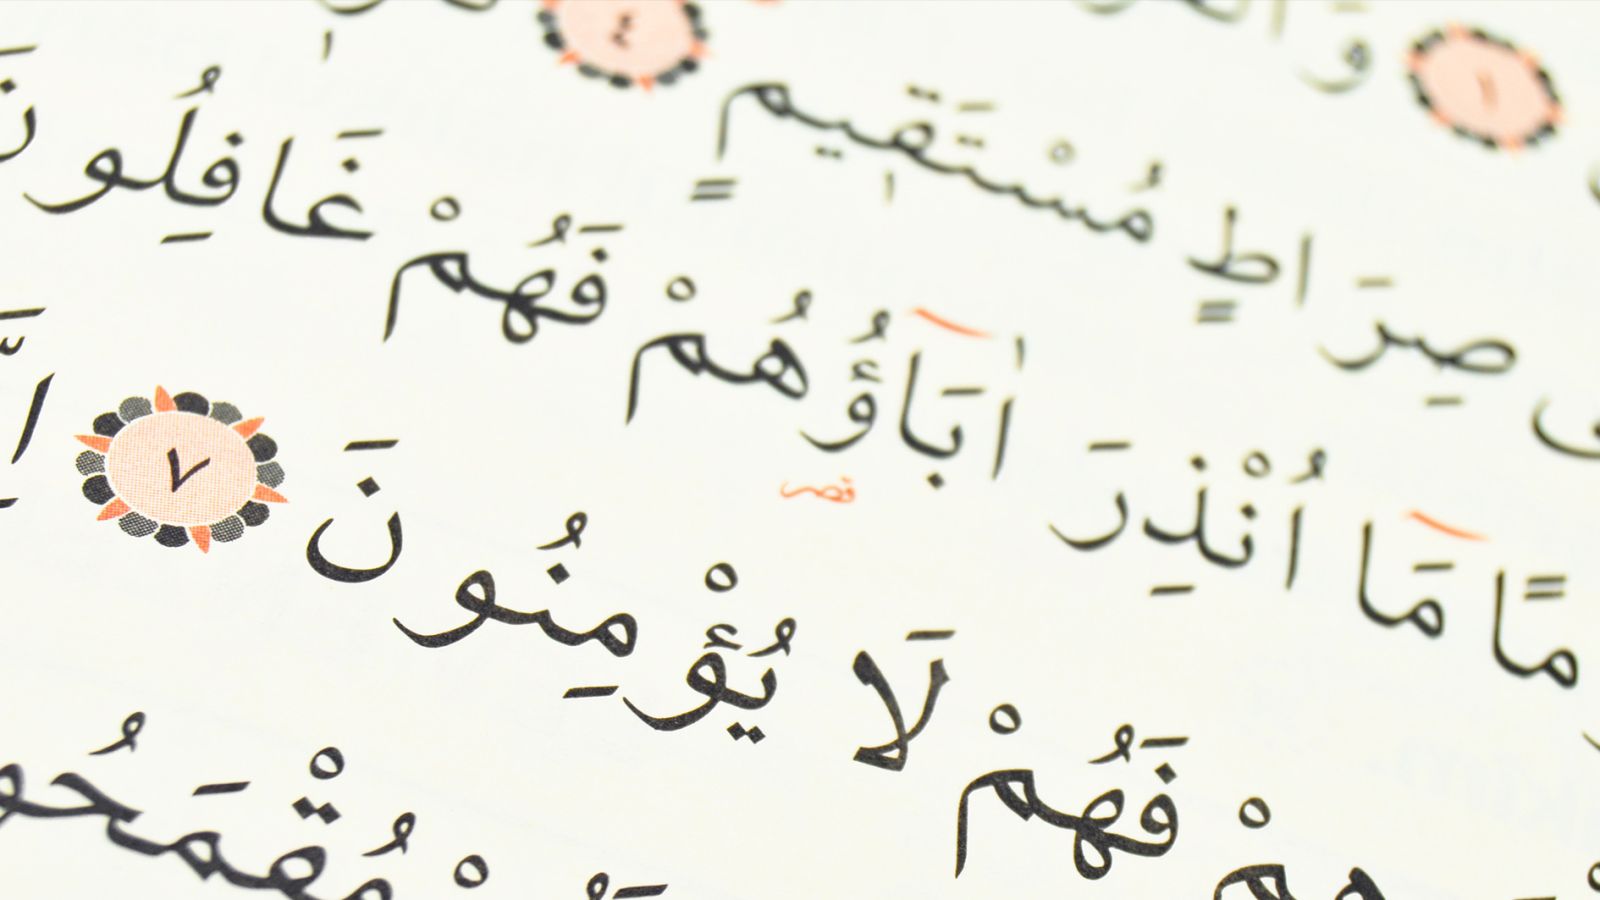 ١ وَ
صِرَاطٍ مُسْتَقِيمٍ ٤
مًا مَٓا اُنْذِرَ اٰبَٓاؤُهُمْ فَهُمْ غَافِلُونَ
قصر
هِمْ فَهُمْ لَا يُؤْمِنُونَ ٧
مُقْمَحُو